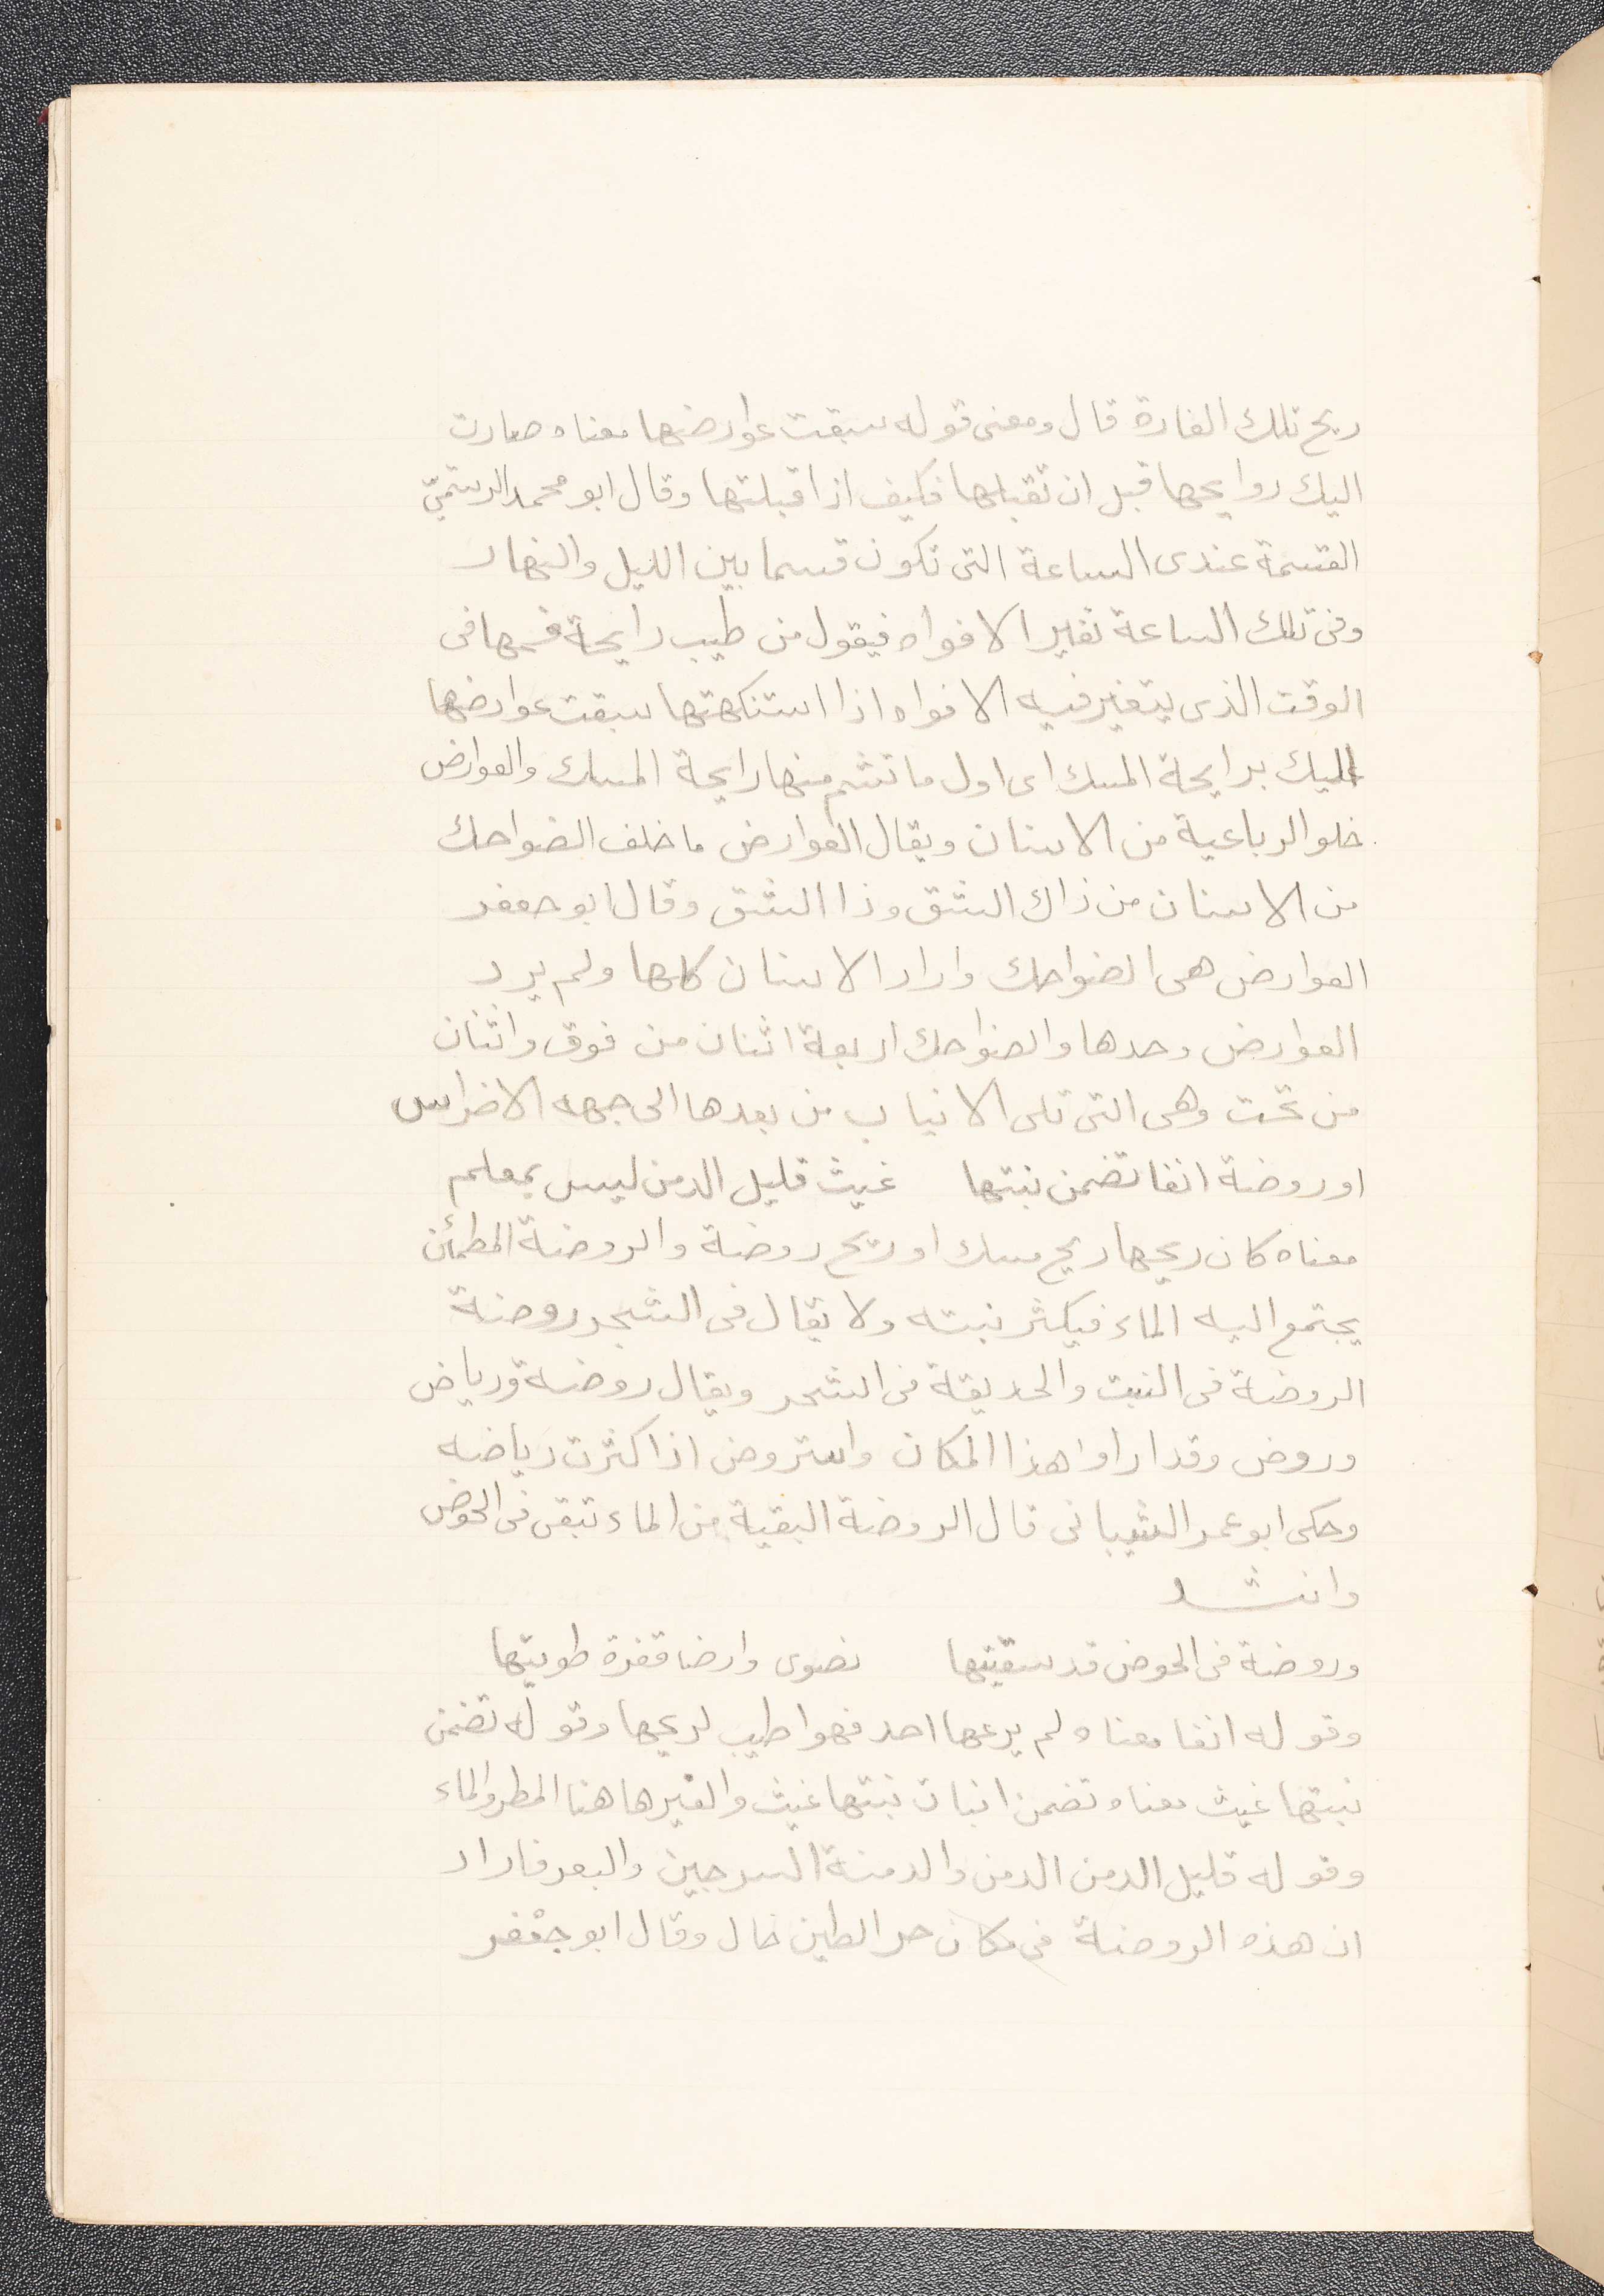 ريح تلك الفارة قال ومعنى قوله سبقت عوارضها معناه صارت
اليك روايحها قبل ان تقبلها فكيف اذا قبلتها وقال ابو محمد الرستميّ
القسمة عندى الساعة التى تكون قسما بين الليل والنهار
وفى تلك الساعة تغير الافواه فيقول من طيب رايحة فمها فى
الوقت الذى يتغير فيه الافواه اذا استنكهتها سبقت عوارضها
اليك برايحة المسك اى اول ما تشم منها رايحة المسك والعوارض
خلو الرباعية من الاسنان ويقال العوارض ما خلف الضواحك
من الاسنان من ذاك الشق وذا الشق وقال ابو جعفر
العوارض هى الضواحك واراد الاسنان كلها ولم يرد
العوارض وحدها والضواحك اربعة اثنان من فوق واثنان
من تحت وهى التى تلى الانياب من بعدها الى جهه الاضراس
او روضة انفا تضمن نبتها غيث قليل الدمن ليس بمعلم
معناه كان ريحها ريح مسك او ريح روضة والروضة المطمأن
يجتمع اليه الماء فيكثر نبته ولا يقال فى الشجر روضة
الروضة فى النبت والحديقة فى الشجر ويقال روضة ورياض
وروض وقد اراوا هذا المكان واستروض اذا كثرت رياضه
وحكى ابو عمر الشيبانى قال الروضة البقية من الماء تبقى فى الحوض
وانشد
وروضة فى الحوض قد سقيتها نضوى وارضا قفرة طويتها
وقوله انفا معناه لم يرعها احد فهو اطيب لريحها وقوله تضمن
نبتها غيث معناه تضمن انبات نبتها غيث والغيرها هنا المطر والماء
وقوله قليل الدمن الدمن والدمنة السرجين والبعر فاراد
ان هذه الروضة فى مكان حر الطين خال وقال ابو جعفر